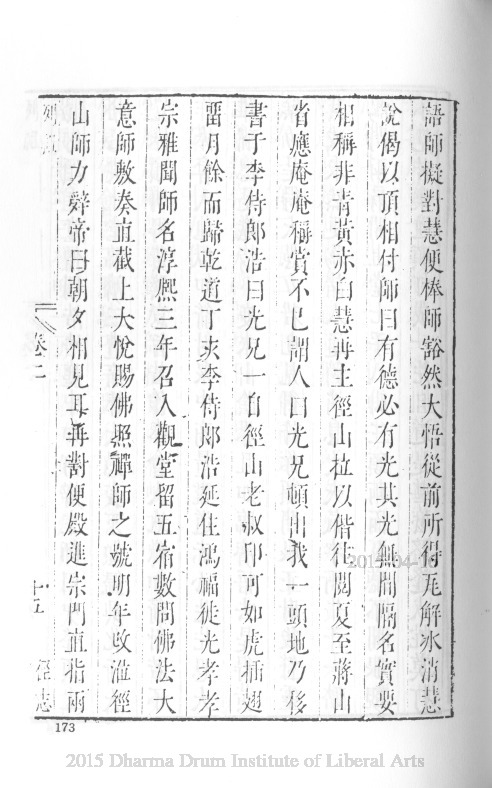 語師擬對慧便棒師豁然大悟從前所得瓦解冰消慧
說偈以頂相付師曰有德必有光其光無間隔名實要
相稱非青黃赤白慧再主徑山拉以偕往閱夏至蔣山
省應庵庵稱賞不已謂人曰光兄頓出我一頭地乃移
書于李侍郎浩曰光兄一自徑山老叔印可如虎插翅
畱月餘而歸乾道丁亥李侍郎浩延住鴻福徙光孝孝
宗雅聞師名淳熈三年召入觀堂留五宿數問佛法大
意師敷奏直截上大悅賜佛照禪師之號明年改涖徑
山師力辭帝曰朝夕相見耳再對便殿進宗門直指兩
卷二
十五
徑志
173
2015-04-1
2015 Dharma Drum Institute of Liberal Arts